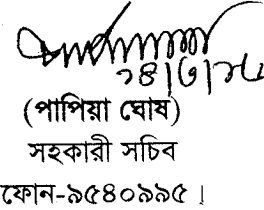 (পাপিয়া ঘোষ)
সহকারী সচিব
ফোন-৯৫৪০৯৯৫ ।